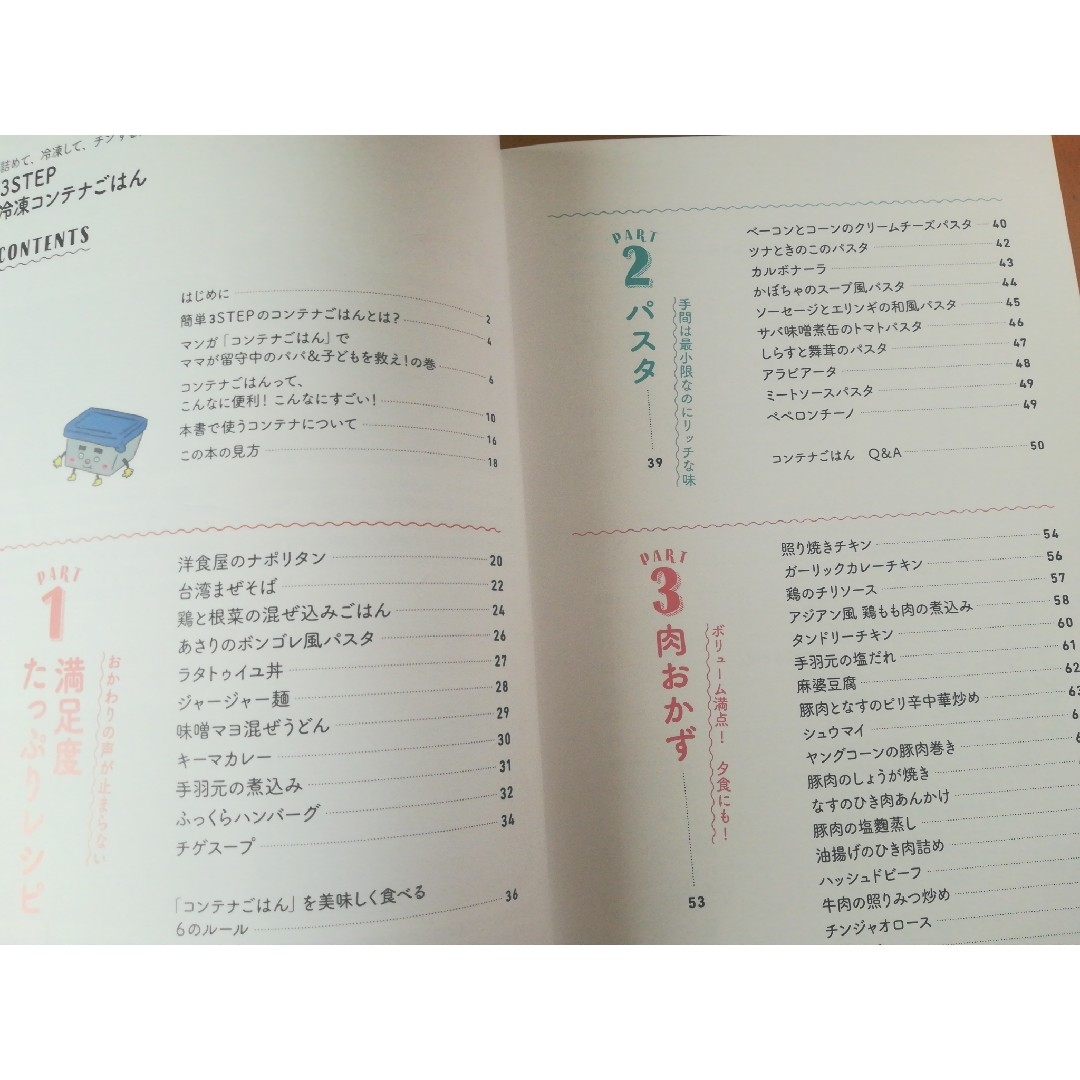 詰めて、冷凍して、チンする
3STEP
冷凍コンテナごはん
CONTENTS
はじめに 2
簡単3STEPのコンテナごはんとは? 4
マンガ「コンテナごはん」で
ママが留守中のパパ&子どもを救え!の巻 6
コンテナごはんって、
こんなに便利! こんなにすごい! 10
本書で使うコンテナについて 16
この本の見方 18
PART
1
満足度
たっぷりレシピ
おかわりの声が止まらない
洋食屋のナポリタン 20
台湾まぜそば 22
鶏と根菜の混ぜ込みごはん 24
あさりのボンゴレ風パスタ 26
ラタトゥイユ丼 27
ジャージャー麺 28
味噌マヨ混ぜうどん 29
キーマカレー 30
手羽元の煮込み 31
ふっくらハンバーグ 32
チゲスープ 34
「コンテナごはん」を美味しく食べる
6のルール 36
PART
2
パスタ
39
手間は最小限なのにリッチな味
ベーコンとコーンのクリームチーズパスタ 40
ツナときのこのパスタ 42
カルボナーラ 43
かぼちゃのスープ風パスタ 44
ソーセージとエリンギの和風パスタ 45
サバ味噌煮缶のトマトパスタ 46
しらすと舞茸のパスタ 47
アラビアータ 48
ミートソースパスタ 49
ペペロンチーノ 49
コンテナごはん Q&A 50
PART
3
肉おかず
53
ボリューム満点! 夕食にも!
照り焼きチキン 54
ガーリックカレーチキン 56
鶏のチリソース 57
アジアン風 鶏もも肉の煮込み 58
タンドリーチキン 60
手羽元の塩だれ 61
麻婆豆腐 62
豚肉となすのピリ辛中華炒め 63
シュウマイ
ヤングコーンの豚肉巻き
豚肉のしょうが焼き
なすのひき肉あんかけ
豚肉の塩麴蒸し
油揚げのひき肉詰め
ハッシュドビーフ
牛肉の照りみつ炒め
チンジャオロース